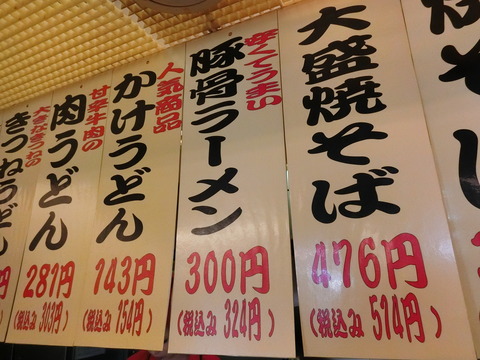 焼そ
大盛焼そば
476円
(税込み 514円)
安くてうまい
豚骨ラーメン
300円
(税込み 324円)
人気商品
かけうどん
143円
(税込み 154円)
甘辛牛肉の
肉うどん
281円
(税込み 303円)
大きなきつねの
きつねうどん
円